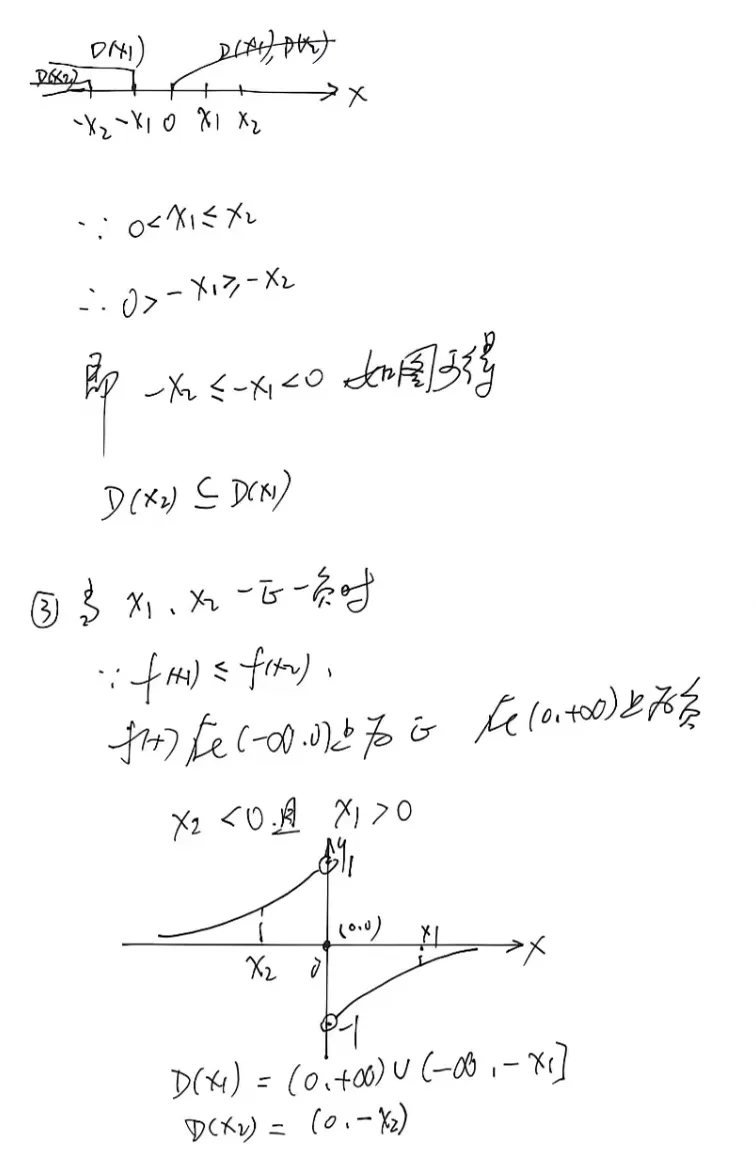 D(x₁) D(x₁), D(x₂)
D(x₂)
-x₂ -x₁ 0 x₁ x₂ x
∵ 0<x₁≤x₂
∴ 0>-x₁≥-x₂
即 -x₂≤-x₁<0 如图可得
D(x₂)⊆D(x₁)
③ 当 x₁、x₂一正一负时
∵f(x₁)≤f(x₂),
f(x)在(-∞,0)上为正 在(0,+∞)上为负
x₂<0且 x₁>0
y
1
(0,0) x₁
x₂ 0 x
-1
D(x₁)=(0,+∞)∪(-∞,-x₁]
D(x₂)=(0,-x₂)